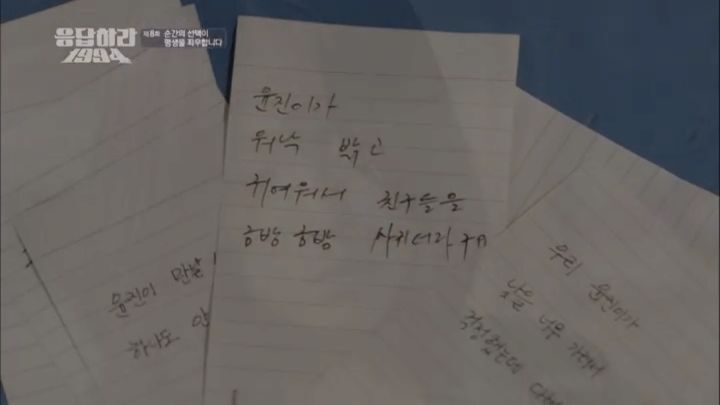 응답하라
1994
제8화 순간의 선택이
평생을 좌우합니다
윤진이가
워낙 밝고
귀여워서 친구들을
금방 금방 사귀더라구
윤진이 만날
하나도 안
우리 윤진이가
낯을 너무 가려서
걱정했는데